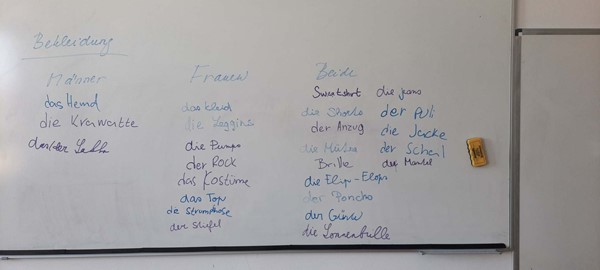 Bekleidung
Männer
das Hemd
die Krawatte
das/der
Frauen
das Kleid
die Leggins
die Pumps
der Rock
das Kostüme
das Top
die Strumpfhose
der Stiefel
Beide
Sweatshirt
die Shorts
der Anzug
die Mütze
Brille
die Flip-Flops
der Poncho
der Gürtel
die Sonnenbrille
die jeans
der Pulli
die Jacke
der Schal
der Mantel